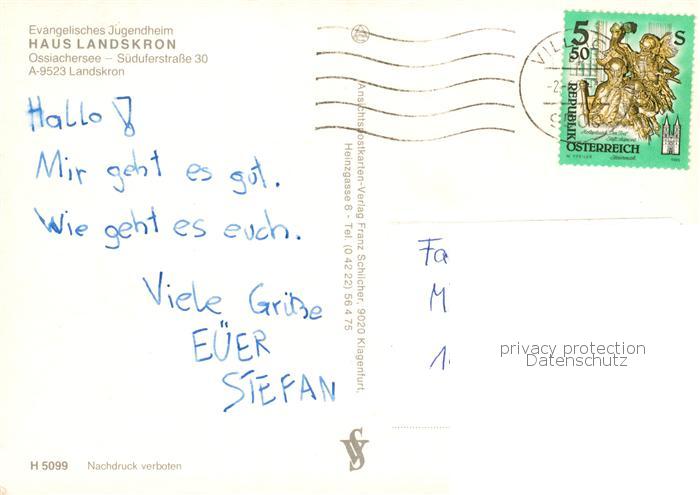 Evangelisches Jugendheim
HAUS LANDSKRON
Ossiachersee – Süduferstraße 30
A-9523 Landskron
Hallo!
Mir geht es gut.
Wie geht es euch.
Viele Grüße
EÜER
STEFAN
H 5099 Nachdruck verboten
Ansichtspostkarten-Verlag Franz Schilcher, 9020 Klagenfurt,
Heinzgasse 8 - Tel. (0 42 22) 56 4 75
VILL
5 50 S
REPUBLIK
ÖSTERREICH
Fa
M
1
privacy protection
Datenschutz